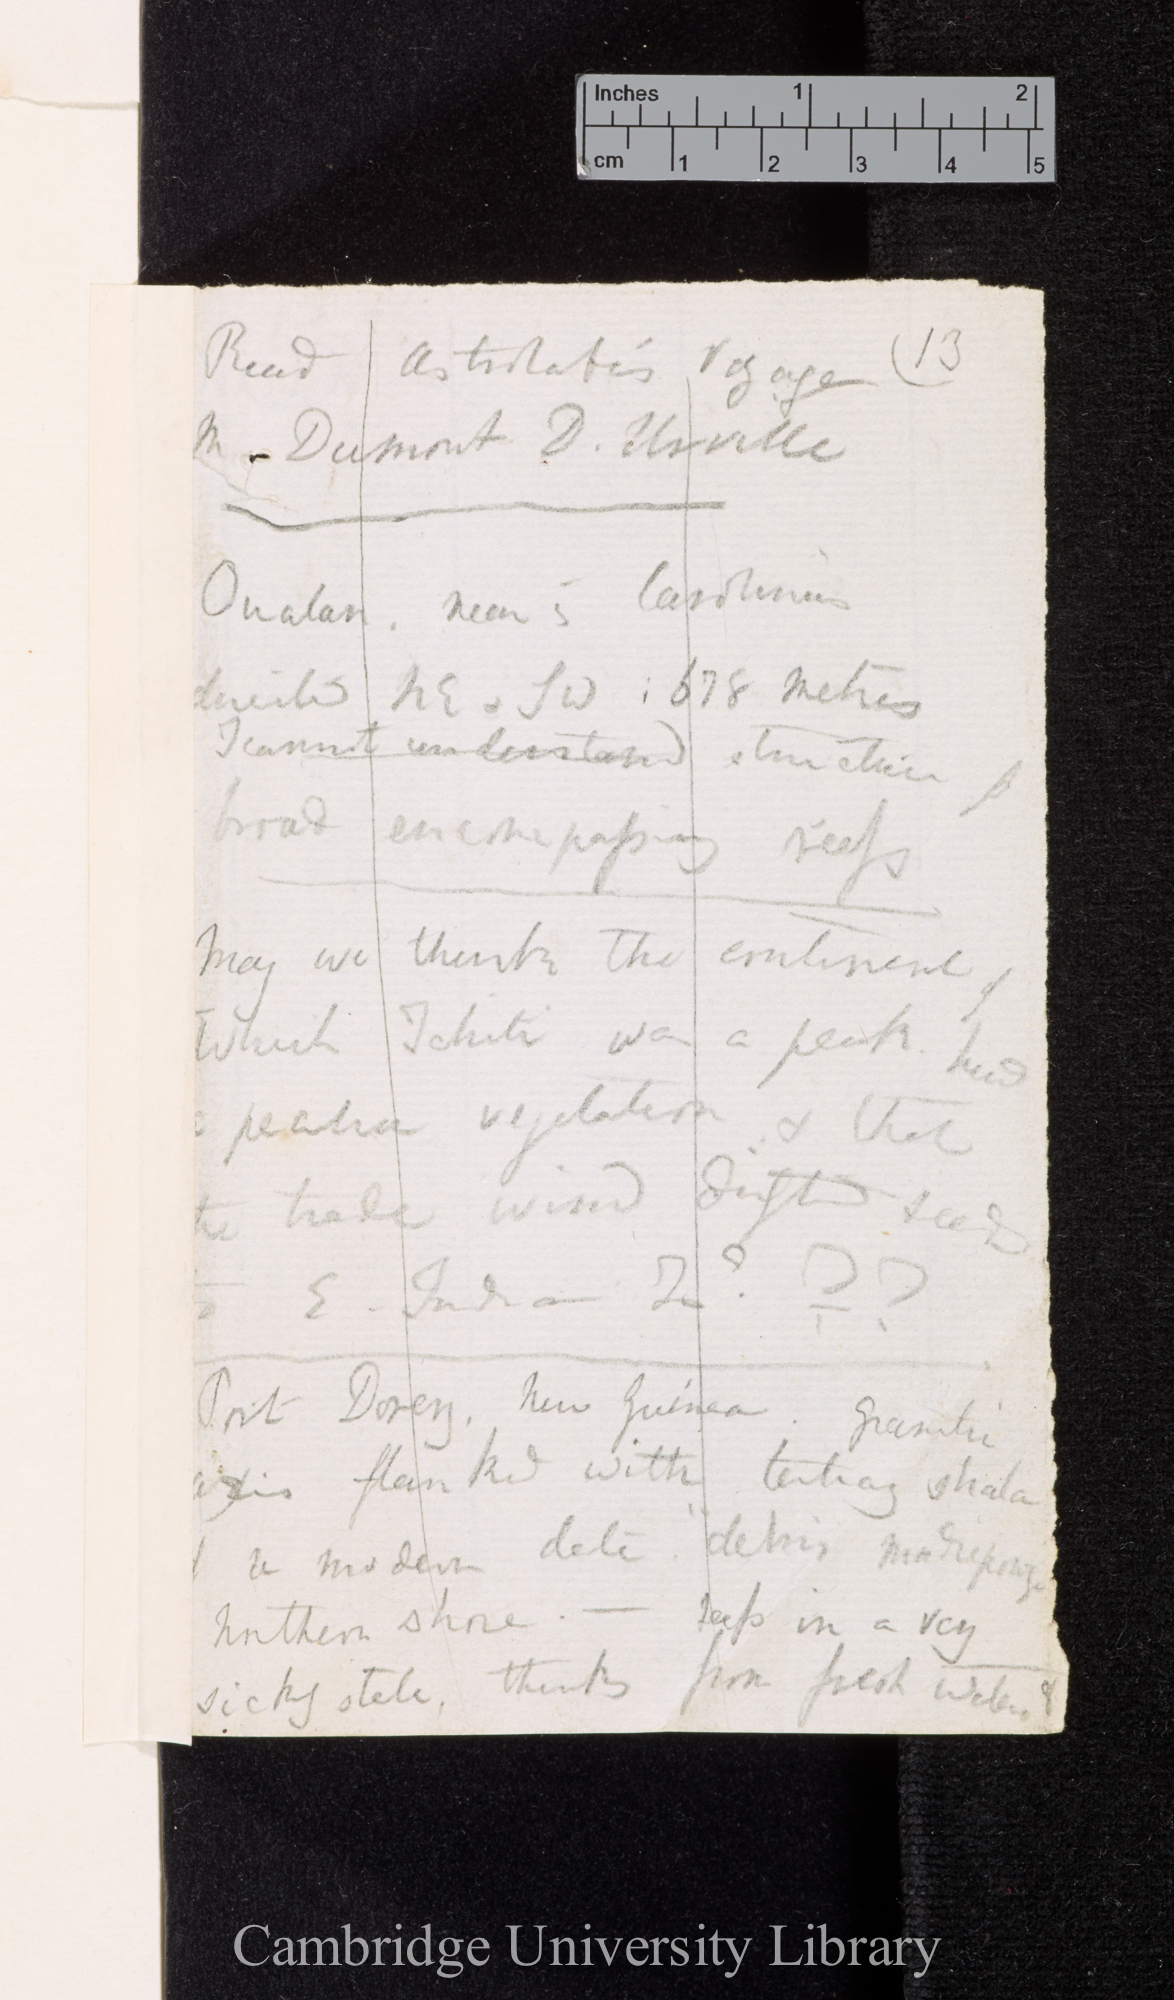 Inches 1 2
cm 1 2 3 4 5
Read Astrolabe's Voyage (13
M. Dumont D. Urville
Oualan. near Carolinas
directed NE & SW: 678 metres
I cannot understand structure of
broad encompassing reefs
May we think the continent of
which Tahiti was a peak. had
peculiar vegetation & that
the trade wind drifted seeds
to E. Indian ??
Port Dorey. New Guinea. Granitic
axis flanked with tertiary strata
modern date "debris madreporiq
Northern shore. — reefs in a very
sickly state. thinks from fresh water &
Cambridge University Library